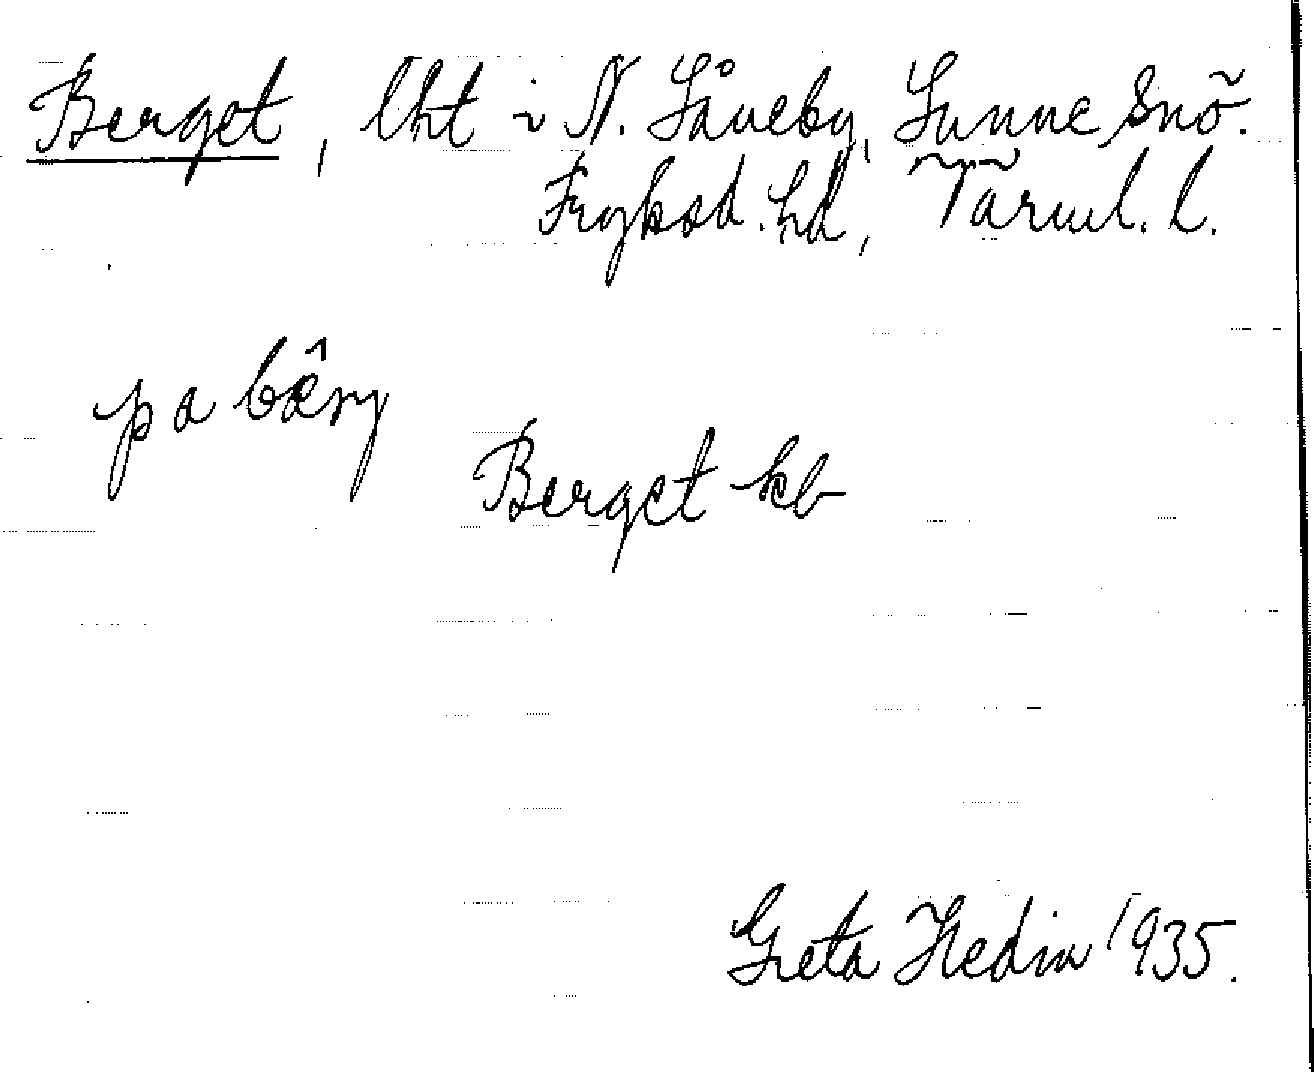 Berget, lht i N. Såneby, Sunne snö.
Fryksd. hd, Värml. l.
pa bærg
Berget kb
Greta Hedin 1935.